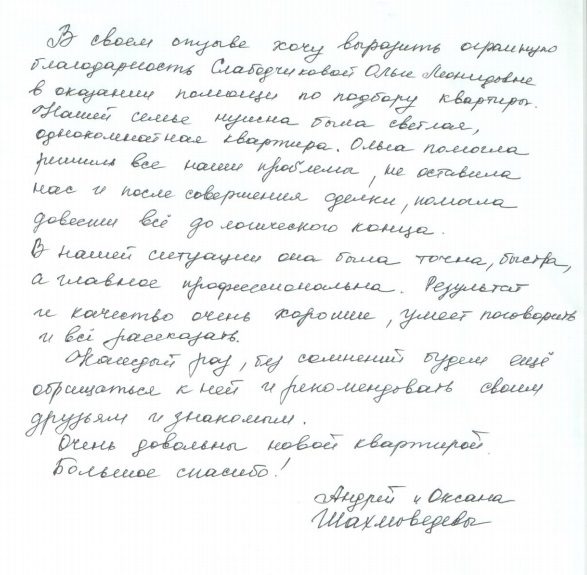 В своем отзыве хочу выразить огромную
благодарность Слабодчиковой Ольге Леонидовне
в оказании помощи по подбору квартиры.
Нашей семье нужна была светлая,
однокомнатная квартира. Ольга помогла
решить все наши проблемы, не оставила
нас и после совершения сделки, помогла
довести всё до логического конца.
В нашей ситуации она была точна, быстра,
а главное профессиональна. Результат
и качество очень хорошие, умеет поговорить
и всё рассказать.
Каждый раз, без сомнений будем ещё
обращаться к ней и рекомендовать своим
друзьям и знакомым.
Очень довольны новой квартирой.
Большое спасибо!
Андрей и Оксана
Шахмведевы